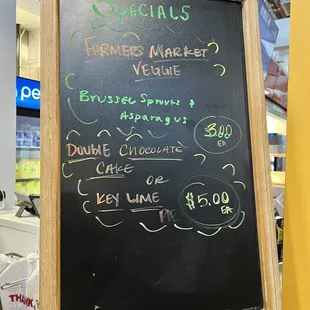 SPECIALS
FARMERS MARKET
VEGGIE
BRUSSEL SPROUTS &
ASPARAGUS
3.00
EA
DOUBLE CHOCOLATE
CAKE
OR
KEY LIME
PIE
$5.00
EA
pe
THANK